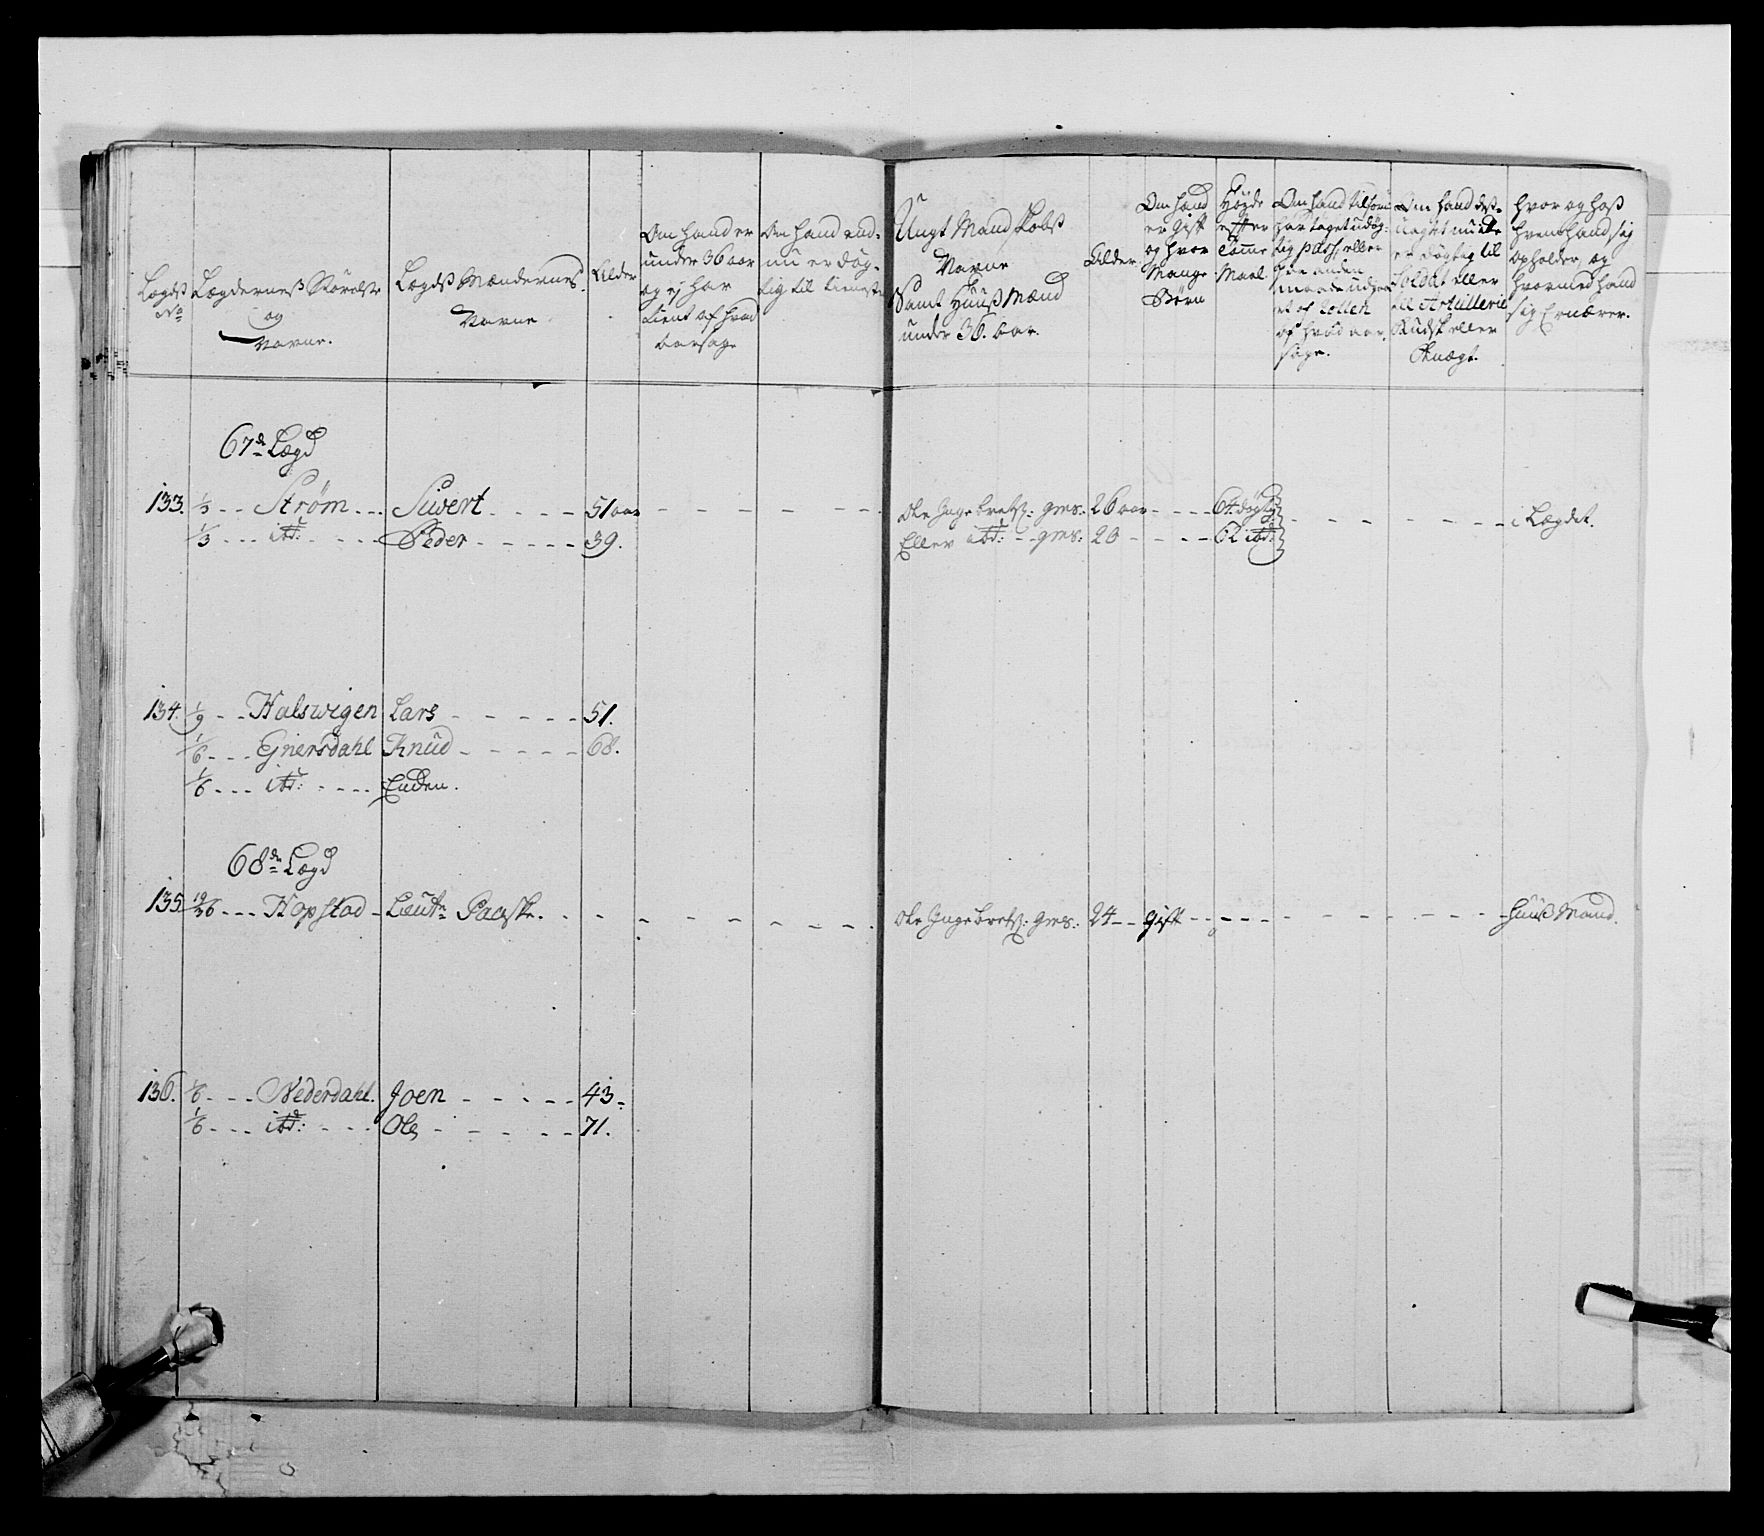 Lægds No
Lægderneß Störelse og Navne.
Lægds Mændernes Navne
Alder
Om hand er under 36 aar og ej har tient af hvad aarsage
Om hand end nu er dög- tig til tieneste
Ungt Mandskabß Navne Samt Huuß Mænd under 36. aar.
Alder
Om hand er gift og hvor Mange Börn
Höyde efter Tomme Maal
Om hand tilforn har taget udög- tig Pass, eller paa anden maade af hvad aar- sage.
Om hand er dögtig til Soldat eller til Artillerie Kudsk eller Knægt.
hvor og hoß hvem hand sig opholder, og hvormed hand sig Ernærer.
67de Lægd
133. 1/3 - - Strøm - - - Siwert - - - - 51 aar - - - - - - Ole Ingebretß: gms: 26 aar - - - - 64. dögtig - - - - - - i Lægdet.
1/3 - - - ibd: - - - - Peder - - - - - 39. Ellev ibd: - - gms: 20 - - - - - 62 ibd:
134. 1/9 - - Halswigen Lars - - - - - 51.
1/6 - - - Gniersdahl Knud - - - - - 68.
1/6 - - - ibd: - - - - Enden.
68de Lægd
135. - - - Hopstad - Leutn: Paaske. - - - - - - - - Ole Ingebretß: gms: 24 - - gift - - - - - - - - - - - - Huuß Mand.
136. 1/6 - - - Nederdahl. Joen - - - - - 43 -
1/6 - - - ibd: - - - Ole - - - - - 71.